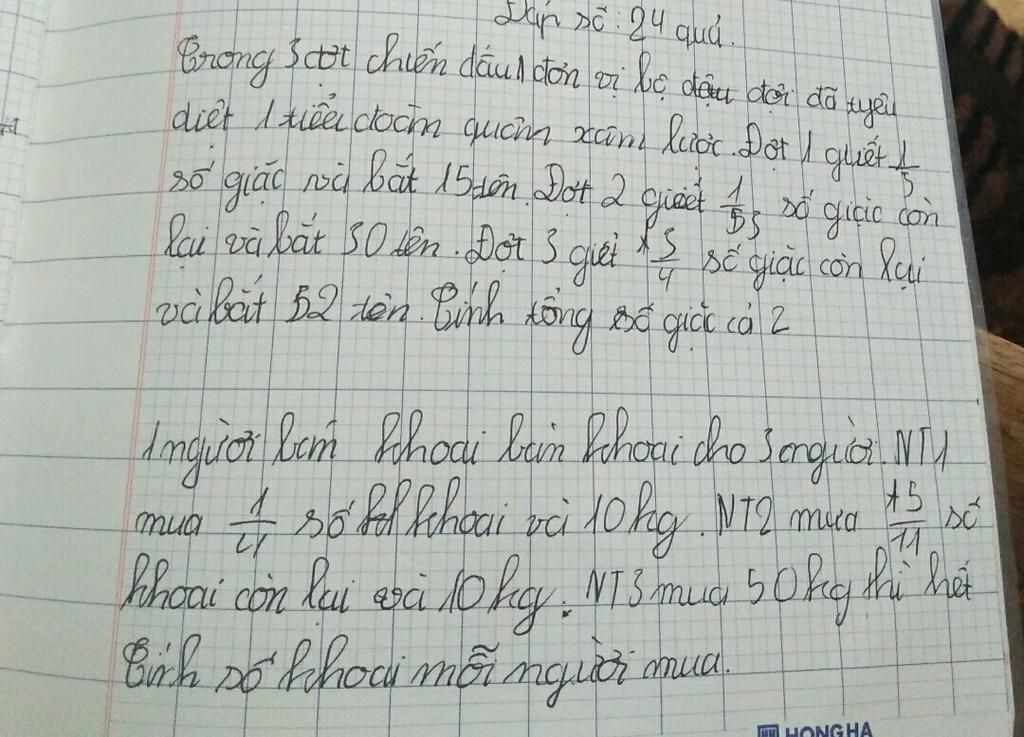 Đáp số: 24 quả.
Trong 3 đợt chiến đấu 1 đơn vị bộ đội đã tiêu
diệt 1 tiểu đoàn quân xâm lược. Đợt 1 giết 1/5
số giặc và bắt 15 tên. Đợt 2 giết 1/3 số giặc còn
lại và bắt 30 tên. Đợt 3 giết 3/4 số giặc còn lại
và bắt 52 tên. Tính tổng số giặc cả 2
1 người bán khoai bán khoai cho 3 người. NT1
mua 1/4 số khoai và 10 kg. NT2 mua 5/11 số
khoai còn lại và 10 kg. NT3 mua 50 kg thì hết
Tính số khoai mỗi người mua.
HONG HA